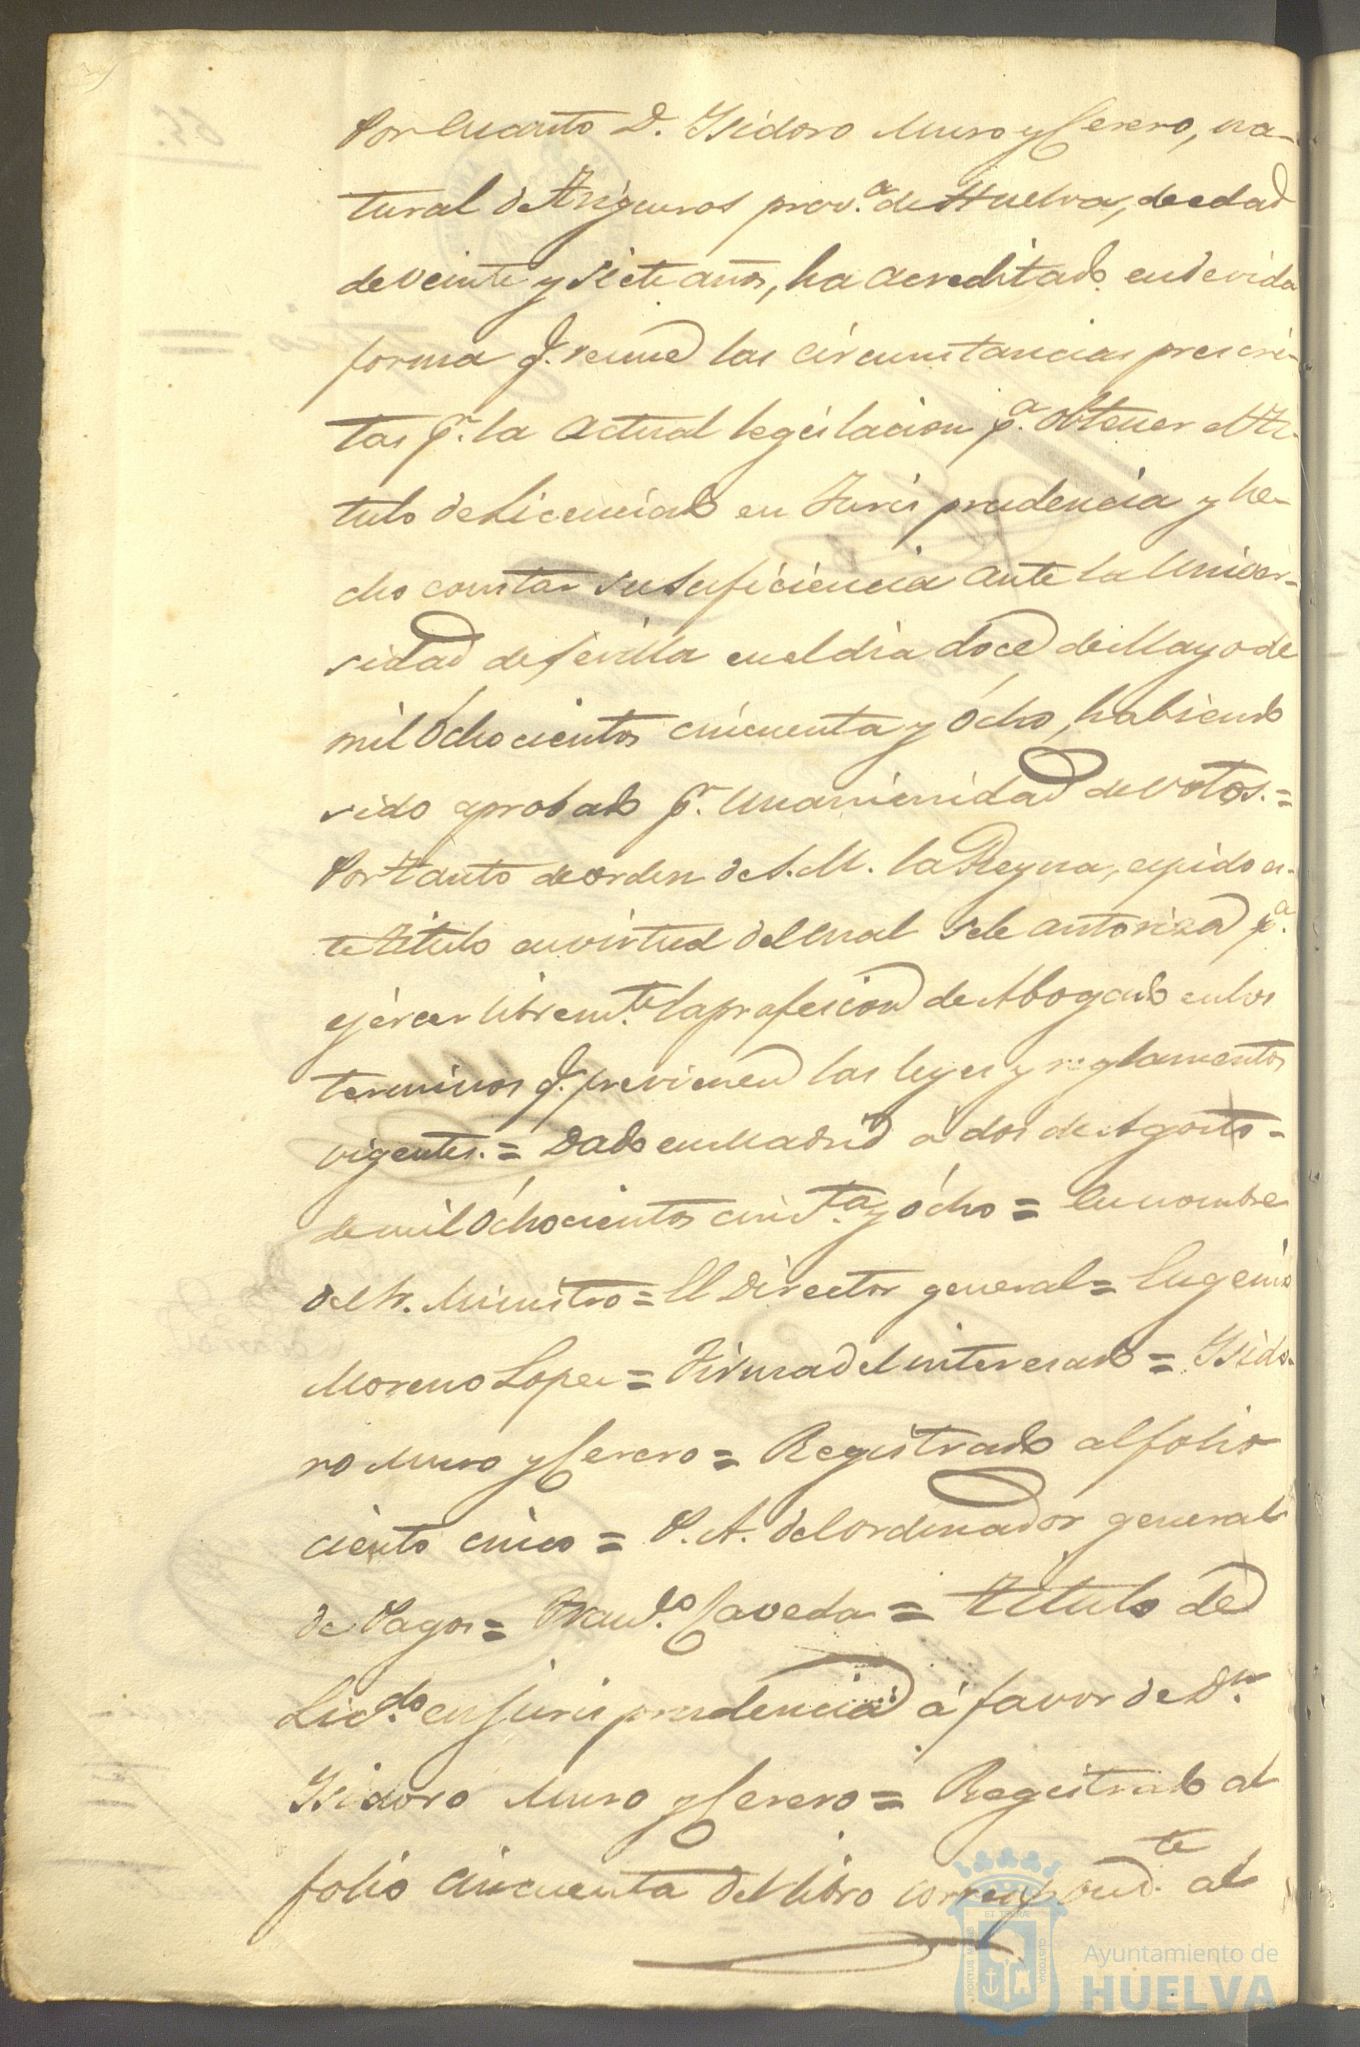 Por Cuanto D. Isidoro Muro y Cerero, na-
tural de Trigueros prov.ª de Huelva, de edad
de veinte y siete años, ha acreditado en devida
forma q.e reune las circunstancias prescri-
tas p.r la actual legislacion p.ª obtener el Ti-
tulo de Licenciado en Jurisprudencia y he-
cho constar su suficiencia ante la Univer-
sidad de Sevilla en el dia doce de Mayo de
mil ochocientos cincuenta y ócho, habiendo
sido aprobado p.r unanimidad de votos. =
Por tanto de orden de S. M. la Reyna, espido es-
te titulo en virtud del cual se le autoriza p.ª
ejercer librem.te la profesion de Abogado en los
terminos q.e previenen las leyes y reglamentos
vigentes. = Dado en Madrid á dos de Agosto -
de mil óchocientos cinc.ta y ócho = En nombre
del Sr. Ministro = El Director general = Eugenio
Moreno Lopez = Firma del interesado = Isido-
ro Muro y Cerero = Registrado al folio
ciento cinco = P. A. del ordenador general
de Pagos = Caveda = Titulo de
Lic.do en Jurisprudencia á favor de D.n
Isidoro Muro y Cerero = Registrado al
folio cincuenta del libro correspond.te al
Ayuntamiento de
HUELVA